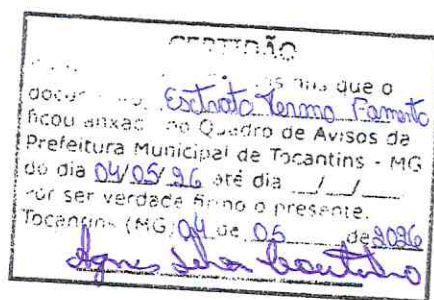 CERTIDÃO
que o
Extrato Termo Fomento
ficou afixado no Quadro de Avisos da
Prefeitura Municipal de Tocantins - MG
do dia 04/05/26 até dia __/__/__
Por ser verdade firmo o presente.
Tocantins (MG) 04 de 05 de 2026
Agnes Coutinho